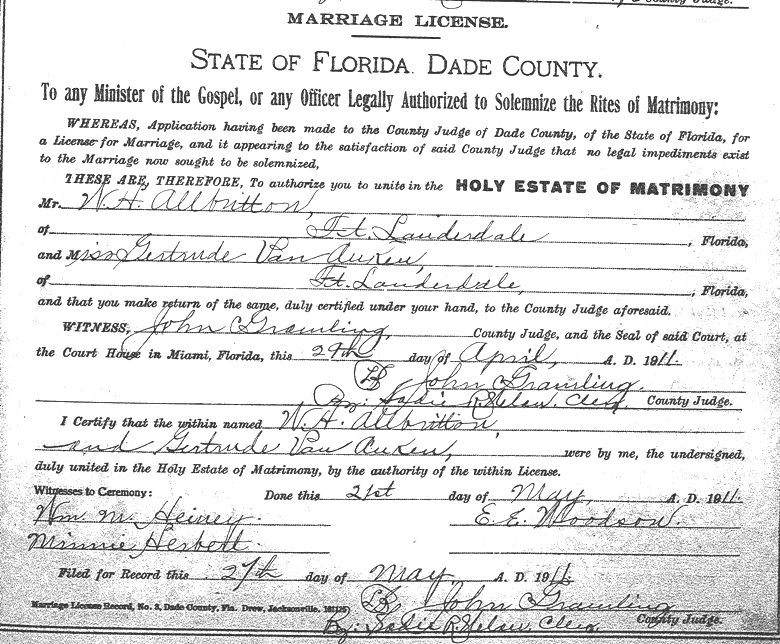 County Judge.
MARRIAGE LICENSE.
STATE OF FLORIDA. DADE COUNTY.
To any Minister of the Gospel, or any Officer Legally Authorized to Solemnize the Rites of Matrimony:
WHEREAS, Application having been made to the County Judge of Dade County, of the State of Florida, for
a License for Marriage, and it appearing to the satisfaction of said County Judge that no legal impediments exist
to the Marriage now sought to be solemnized,
THESE ARE, THEREFORE, To authorize you to unite in the HOLY ESTATE OF MATRIMONY
Mr. W. H. Allbritton,
of Ft. Lauderdale, Florida,
and Miss Gertrude Van Auken,
of Ft. Lauderdale, , Florida,
and that you make return of the same, duly certified under your hand, to the County Judge aforesaid.
WITNESS, John Gramling, County Judge, and the Seal of said Court, at
the Court House in Miami, Florida, this 29th day of April, A. D. 1911.
John Gramling.
By: Sadie R. Clerk County Judge.
I Certify that the within named W. H. Allbritton,
and Gertrude Van Auken, were by me, the undersigned,
duly united in the Holy Estate of Matrimony, by the authority of the within License.
Witnesses to Ceremony: Done this 21st day of May, A. D. 1911.
Wm. M. Heiney. E. E. Woodson.
Minnie Herbert.
Filed for Record this 27th day of May, A. D. 1911.
Marriage License Record, No. 3, Dade County, Fla. Drew, Jacksonville. John Gramling
By: Sadie R. Clerk County Judge.